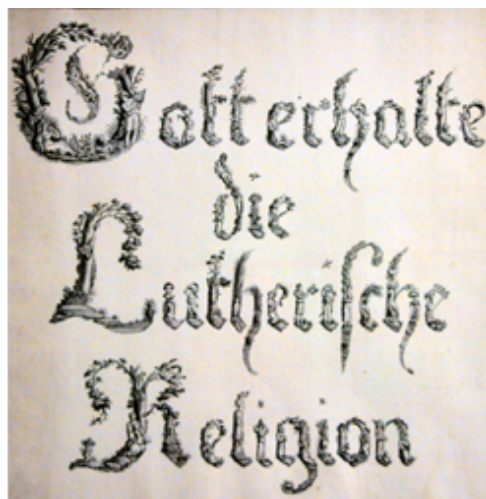 Gott erhalte
die
Lutheriſche
Religion